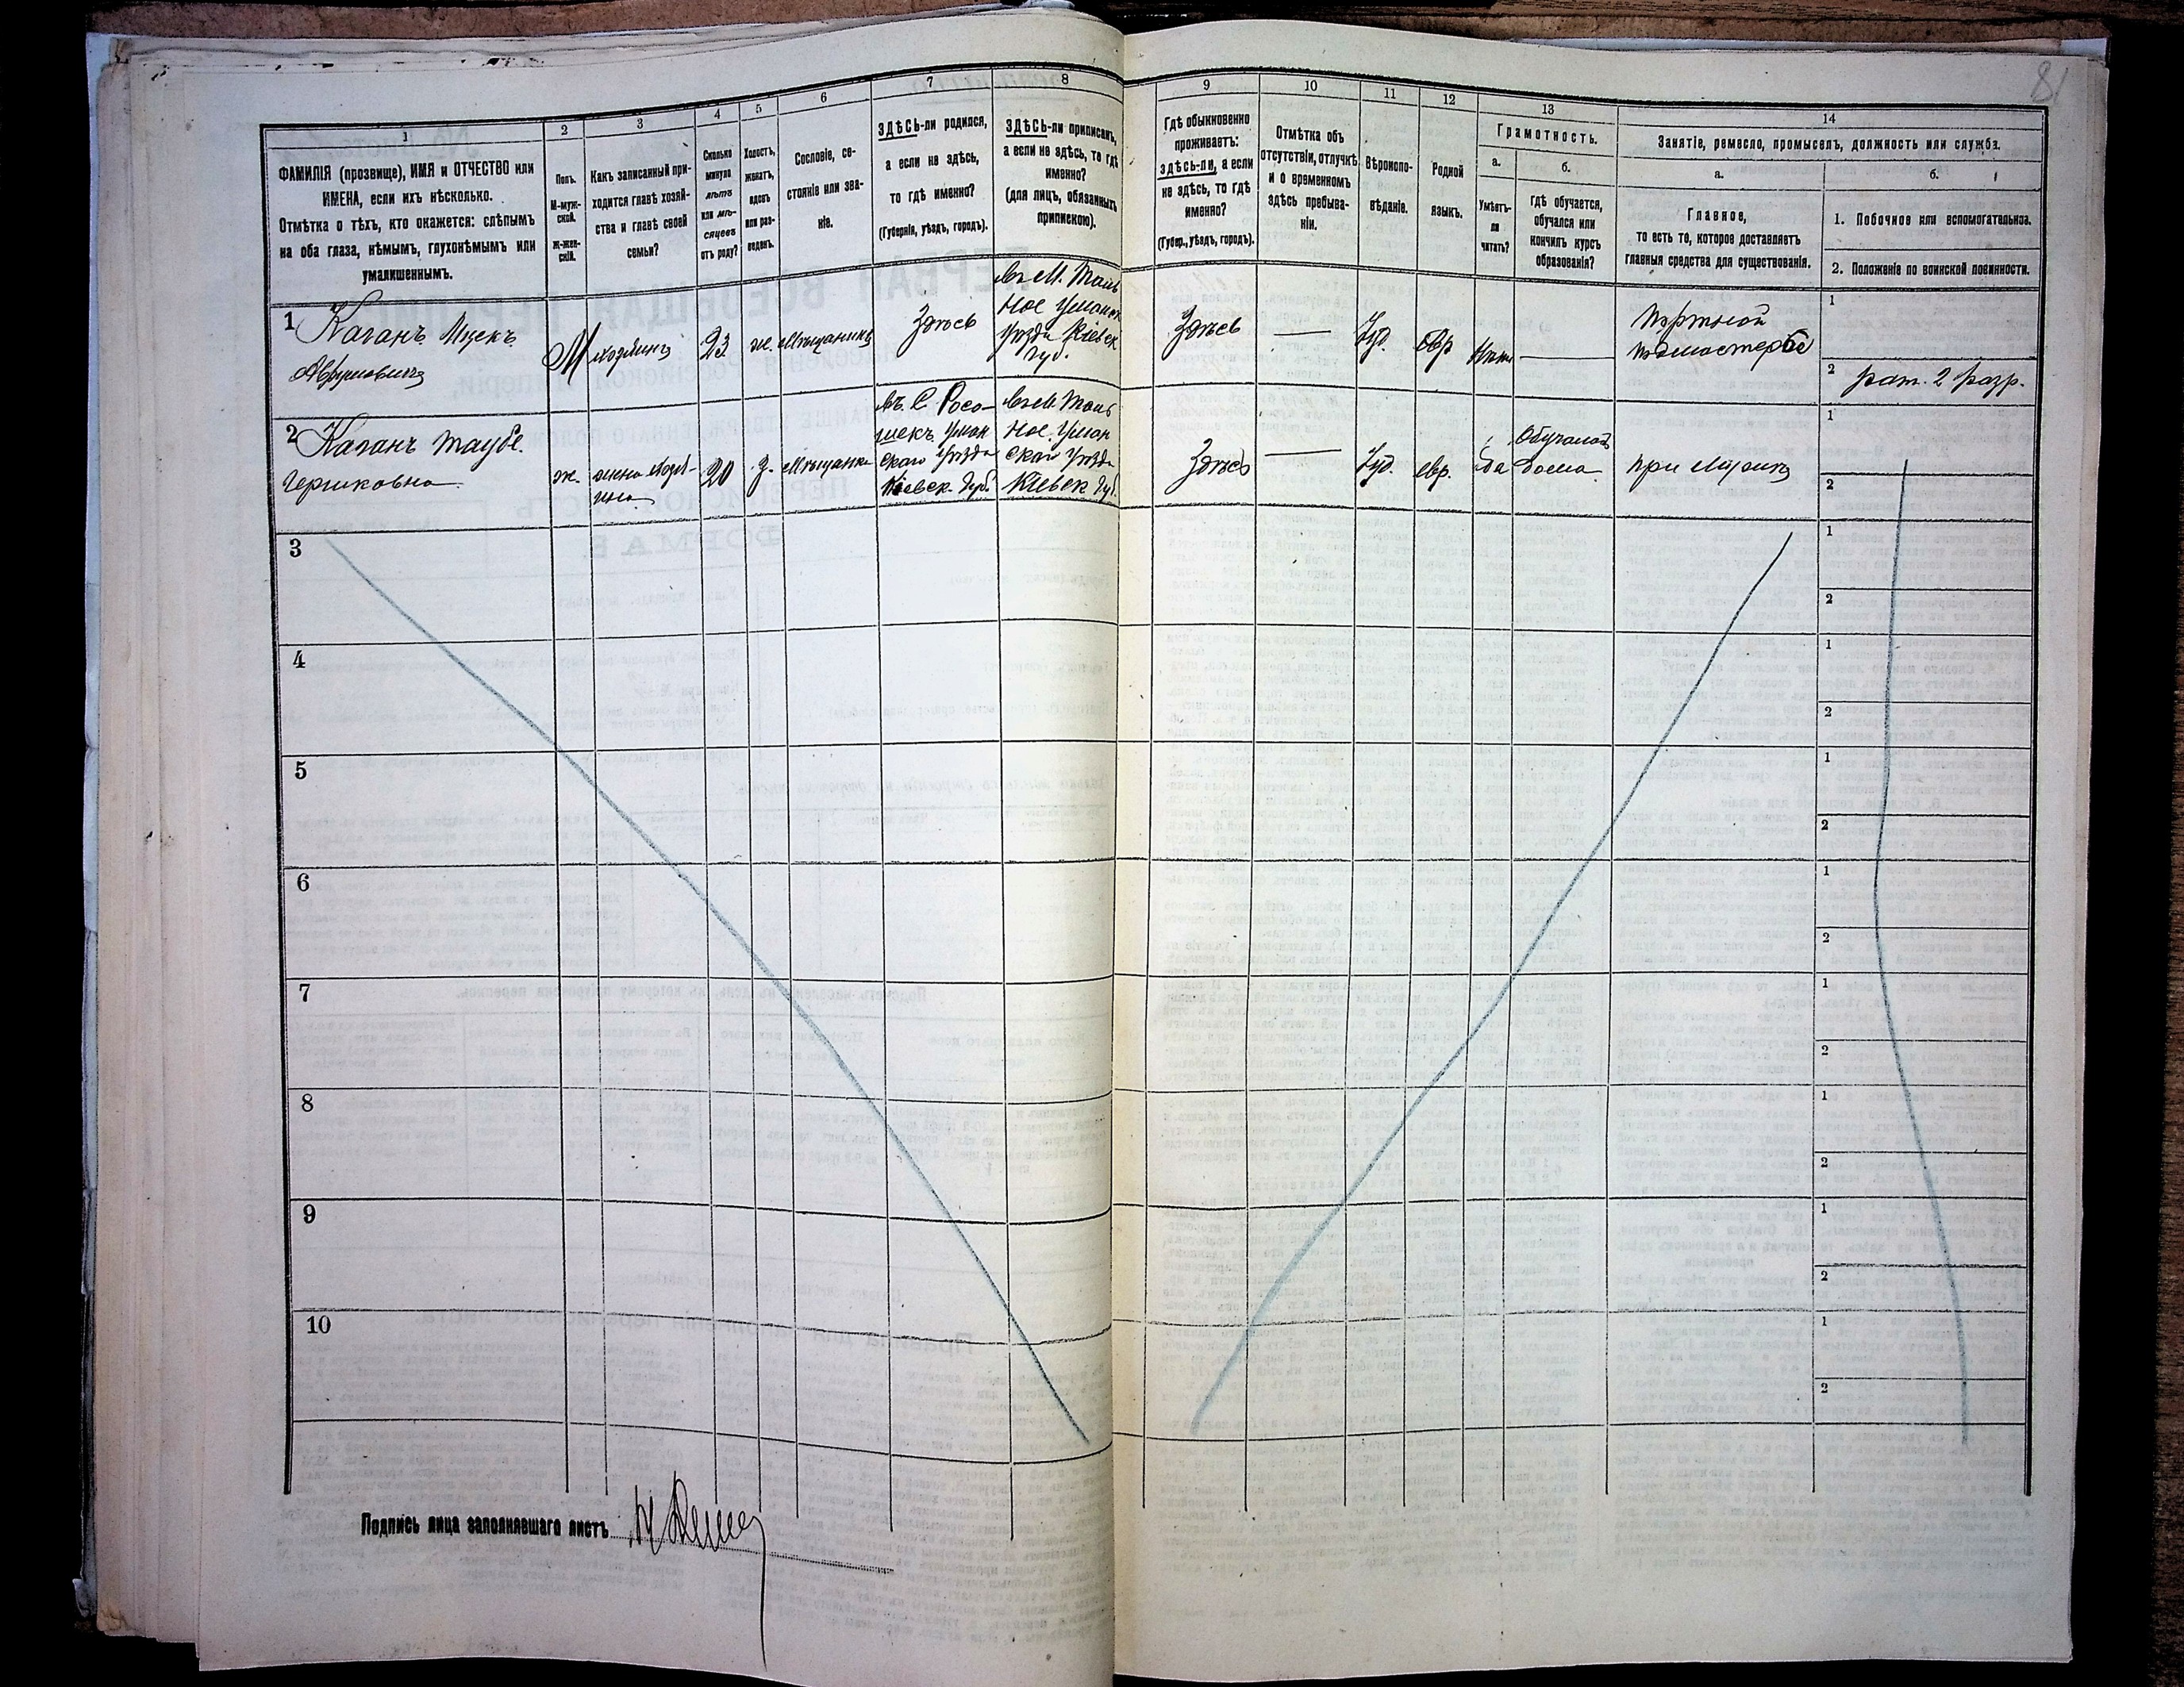 81
1
2
3
4
5
6
7
8
9
10
11
12
13
14
ФАМИЛІЯ (прозвище), ИМЯ и ОТЧЕСТВО или
ИМЕНА, если ихъ нѣсколько.
Отмѣтка о тѣхъ, кто окажется: слѣпымъ
на оба глаза, нѣмымъ, глухонѣмымъ или
умалишеннымъ.
Полъ.
М-муж-
ской.
ж-жен-
скій.
Какъ записанный при-
ходится главѣ хозяй-
ства и главѣ своей
семьи?
Сколько
минуло
лѣтъ
или мѣ-
сяцевъ
отъ роду?
Холостъ,
женатъ,
вдовъ
или раз-
веденъ.
Сословіе, со-
стояніе или зва-
ніе.
ЗДѢСЬ-ли родился,
а если не здѣсь,
то гдѣ именно?
(Губернія, уѣздъ, городъ).
ЗДѢСЬ-ли приписанъ,
а если не здѣсь, то гдѣ
именно?
(для лицъ, обязанныхъ
припискою).
Гдѣ обыкновенно
проживаетъ:
здѣсь-ли, а если
не здѣсь, то гдѣ
именно?
(Губер., уѣздъ, городъ).
Отмѣтка объ
отсутствіи, отлучкѣ
и о временномъ
здѣсь пребыва-
ніи.
Вѣроиспо-
вѣданіе.
Родной
языкъ.
Грамотность.
а.
б.
Умѣетъ-
ли
читать?
гдѣ обучается,
обучался или
кончилъ курсъ
образованія?
Занятіе, ремесло, промыселъ, должность или служба.
а.
б.
Главное,
то есть то, которое доставляетъ
главныя средства для существованія.
1. Побочное или вспомогательное.
2. Положеніе по воинской повинности.
1
Каганъ
Аврумовичъ
М
хозяинъ
23
ж.
мѣщанинъ
Здѣсь
въ М. Таль
ное Уманск
уѣзда Кіевск
губ.
Здѣсь
—
Іуд.
евр
Нѣтъ
—
Портной
подмастерье
1
2 рат. 2 разр.
2
Каганъ Таубе
Гершковна
ж.
жена хозя-
ина
20
з.
мѣщанка
въ. С Росо-
шекъ Уман
скаго Уѣзда
Кіевск. Губ.
въ М Таль
ное. Уман
скаго Уѣзда
Кіевск Губ.
Здѣсь
—
Іуд.
евр.
да
Обучалась
дома
при мужѣ
1
2
3
1
2
4
1
2
5
1
2
6
1
2
7
1
2
8
1
2
9
1
2
10
1
2
Подпись лица заполнявшаго листъ